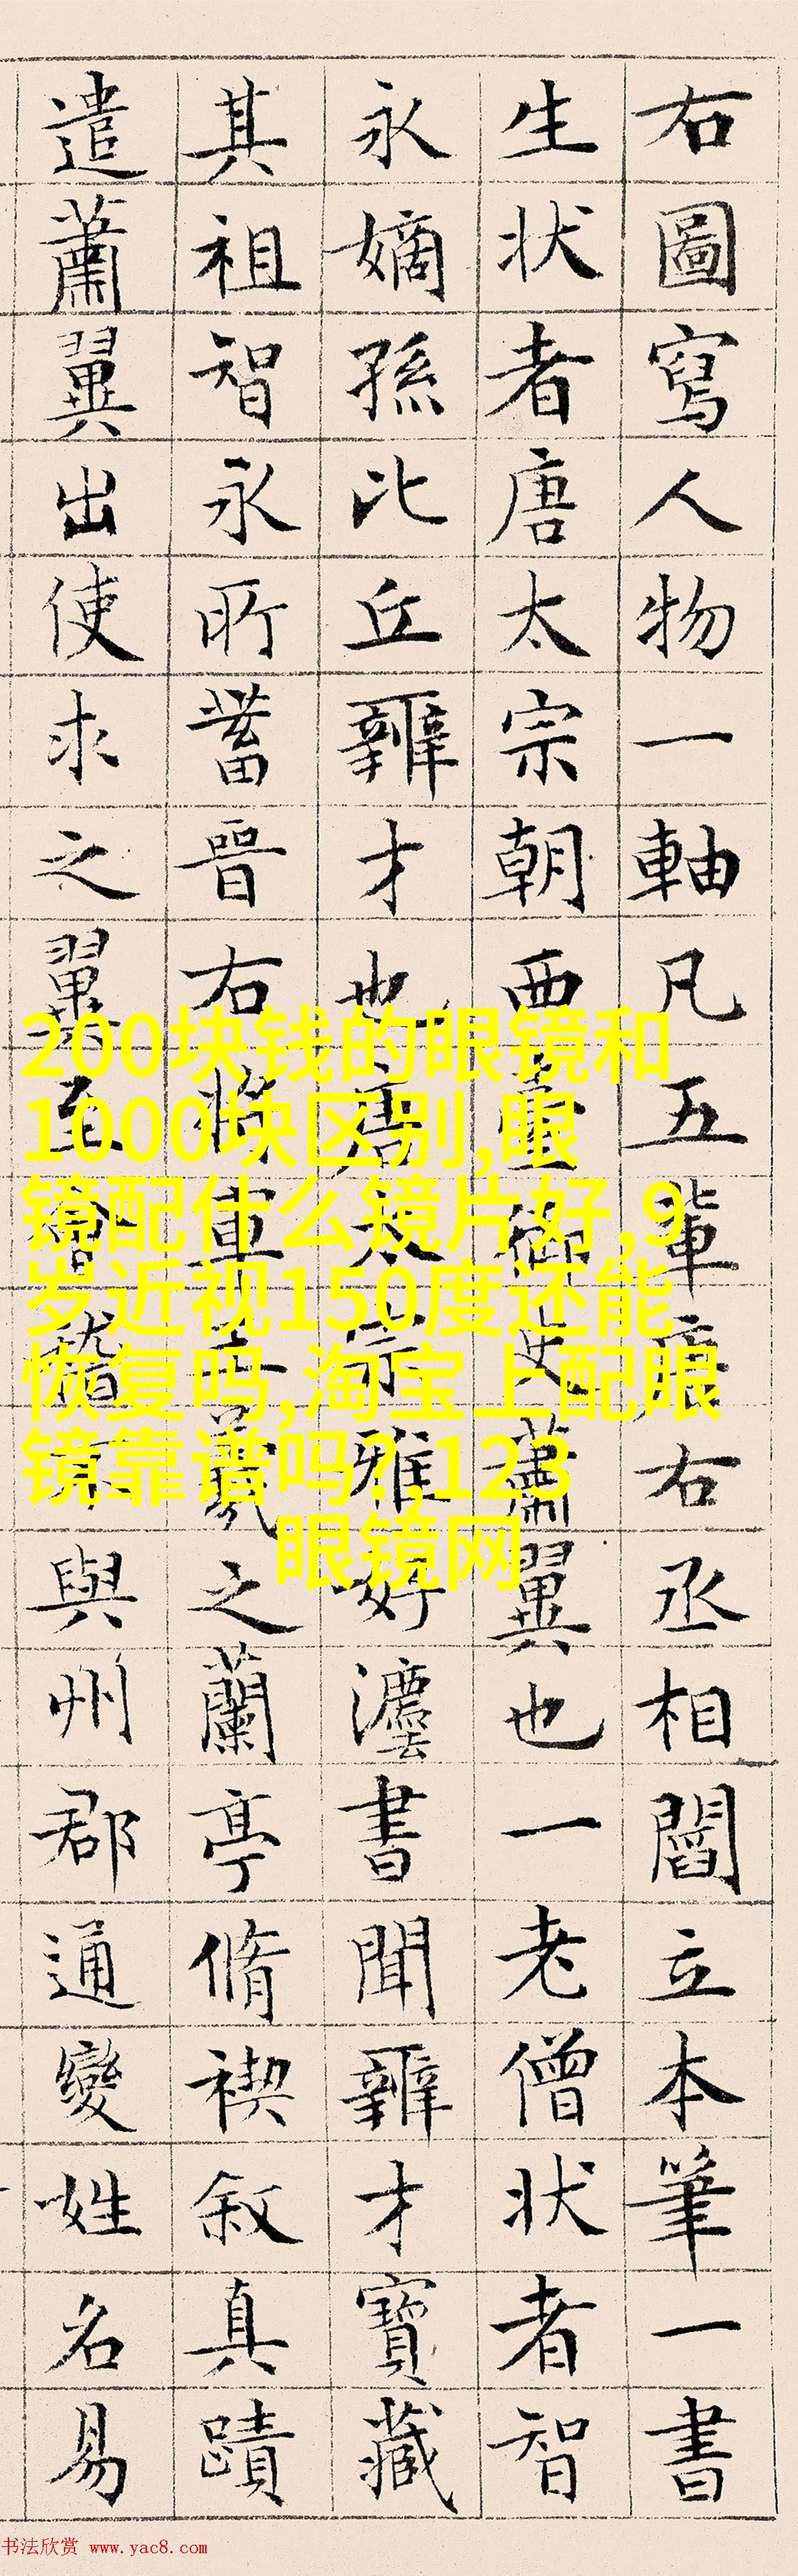 右圖寫人物一軸凡五輩唐右丞相閻立本筆一書
生状者唐太宗朝西臺御史蕭翼也一老僧状者智
永嫡孫比丘辯才也唐太宗雅好灋書聞辯才寶藏
其祖智永所蓄晉右將軍王羲之蘭亭脩禊叙真蹟
遣蕭翼出使求之翼至會稽不與州郡通變姓名易
200块钱的眼镜和
1000块区别,眼
镜配什么镜片好,9
岁近视150度还能
恢复吗,淘宝上配眼
镜靠谱吗?,123
眼镜网
书法欣赏 www.yac8.com